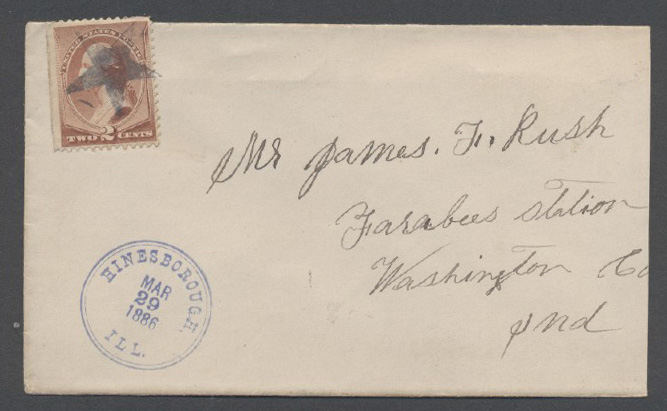 UNITED STATES POSTAGE
TWO 2 CENTS
Mr James. F. Rush
Farabees station
Washington Co
Ind
HINESBOROUGH,
MAR
29
1886
ILL.